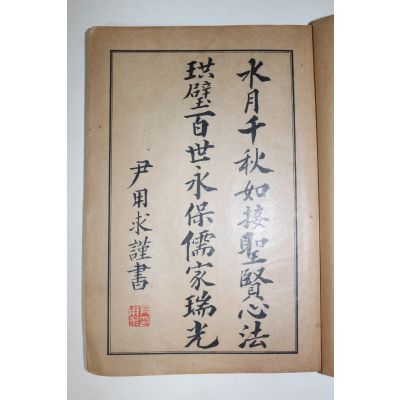 水月千秋如接聖賢心法
珙璧百世永保儒家瑞光
尹用求謹書